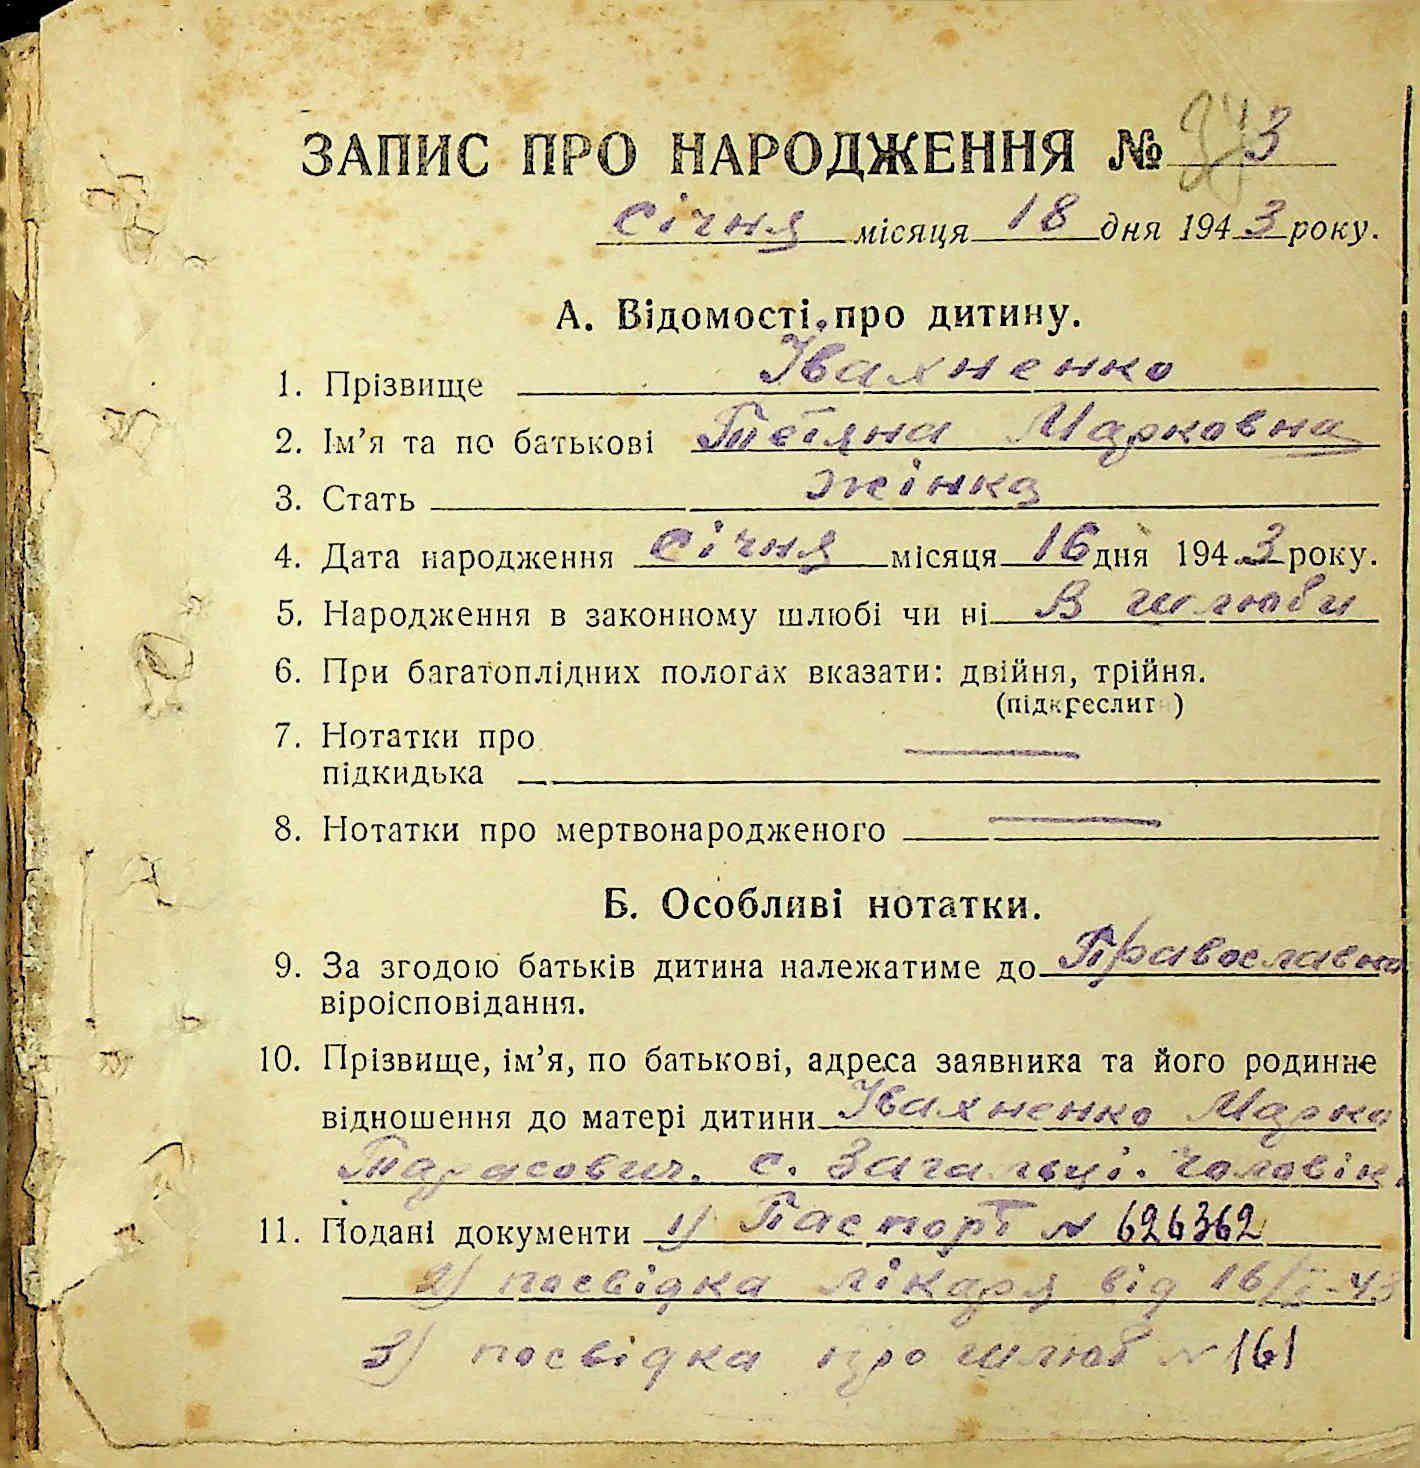 ЗАПИС ПРО НАРОДЖЕННЯ № 3
січня місяця 18 дня 1943 року.
А. Відомості про дитину.
1. Прізвище Івахненко
2. Ім’я та по батькові Тетяна Марковна
3. Стать жінка
4. Дата народження січня місяця 16 дня 1943 року.
5. Народження в законному шлюбі чи ні В шлюби
6. При багатоплідних пологах вказати: двійня, трійня.
(підкреслит )
7. Нотатки про
підкидька
8. Нотатки про мертвонародженого
Б. Особливі нотатки.
9. За згодою батьків дитина належатиме до Православно
віроісповідання.
10. Прізвище, ім’я, по батькові, адреса заявника та його родинне
відношення до матері дитини Івахненко Марко
Тарасович. с. Загальці. Чоловік.
11. Подані документи 1) Паспорт № 626362
2) посвідка лікаря від 16/I-43
3) посвідка про шлюб № 161